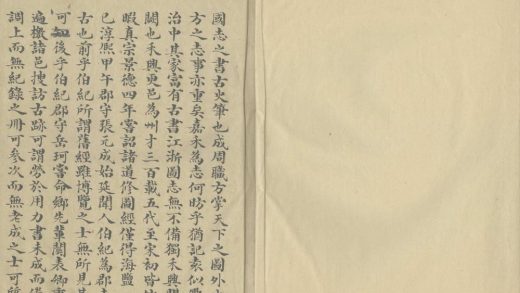 國志之書古史筆也成周職方掌天下之圖外
方之志事亦重矣嘉禾為志何昉乎猶記袁似
治中其家富有古書江浙圖志無不備獨禾興
闕也禾興更邑為州才三百載五代至宋初皆
暇真宗景德四年嘗詔諸道修圖經僅得海鹽
已淳熙甲午郡守張元成始延聞人伯紀為郡
古也前乎伯紀所謂舊經雖博覽之士無所見其
可知後乎伯紀郡守岳珂嘗命鄉先輩關表卿
遍檄諸邑搜訪古跡可謂勞於用力書未成而
調上而無紀錄之冊可參次而無老成之士可